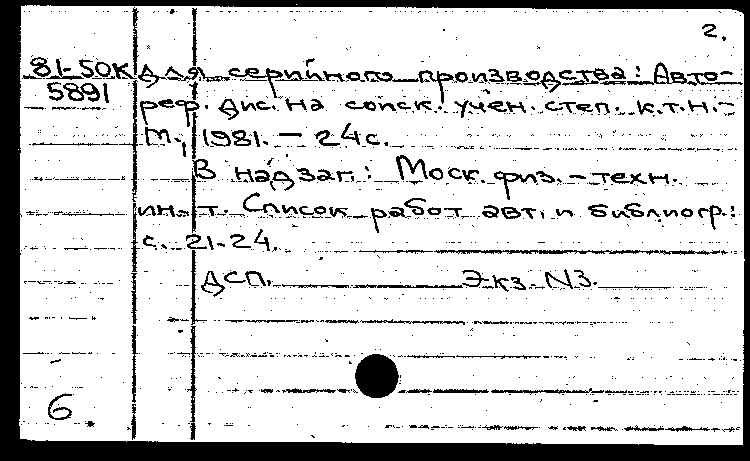 2.
81-50К для серийного производства: Авто-
5891 реф. дис. на соиск. учен. степ. к.т.н.-
М., 1981. — 24с.
В надзаг.: Моск. физ.-техн.
ин-т. Список работ авт. и библиогр.:
с. 21-24.
ДСП. Экз. N3.
6